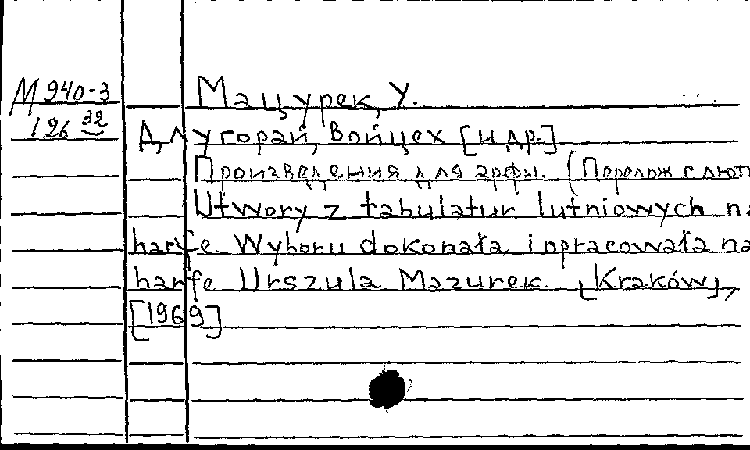 М 940-3
126 32
Мацурек, У.
Длугорай, Войцех [и др.]
Произведения для арфы. (Перелож с лютн
Utwory z tabulatur lutniowych na
harfe. Wyboru dokonała i opracowała na
harfe Urszula Mazurek. [Kraków],
[1969]